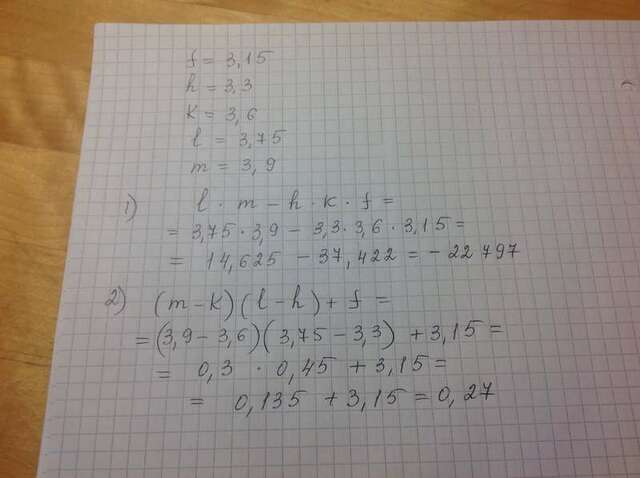 f = 3,15
h = 3.3
k = 3,6
l = 3,75
m = 3,9
1) l · m − h · k · f =
= 3,75 · 3,9 − 3,3 · 3,6 · 3,15 =
= 14,625 − 37,422 = − 22 797
2) (m − k)(l − h) + f =
= (3,9 − 3,6)(3,75 − 3,3) + 3,15 =
= 0,3 · 0,45 + 3,15 =
= 0,135 + 3,15 = 0,27